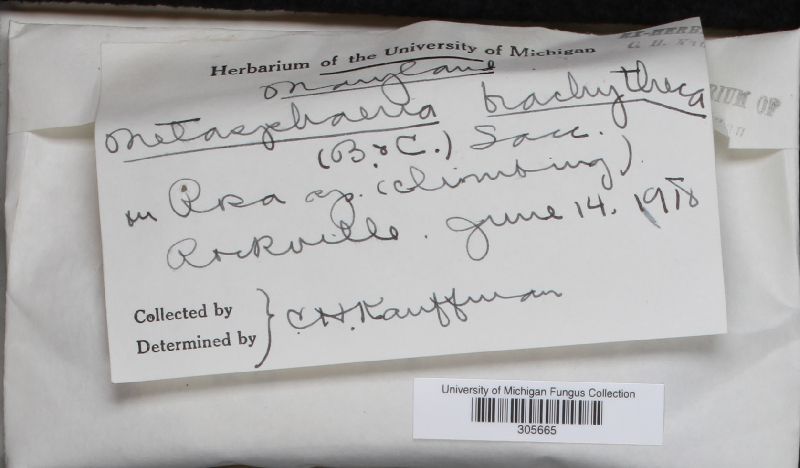 Herbarium of the University of Michigan
Maryland
Metasphaeria brachytheca
(B. & C.) Sacc.
on Rosa sp. (climbing)
Rockville. June 14. 1918
Collected by
Determined by
C.H. Kauffman
University of Michigan Fungus Collection
305665